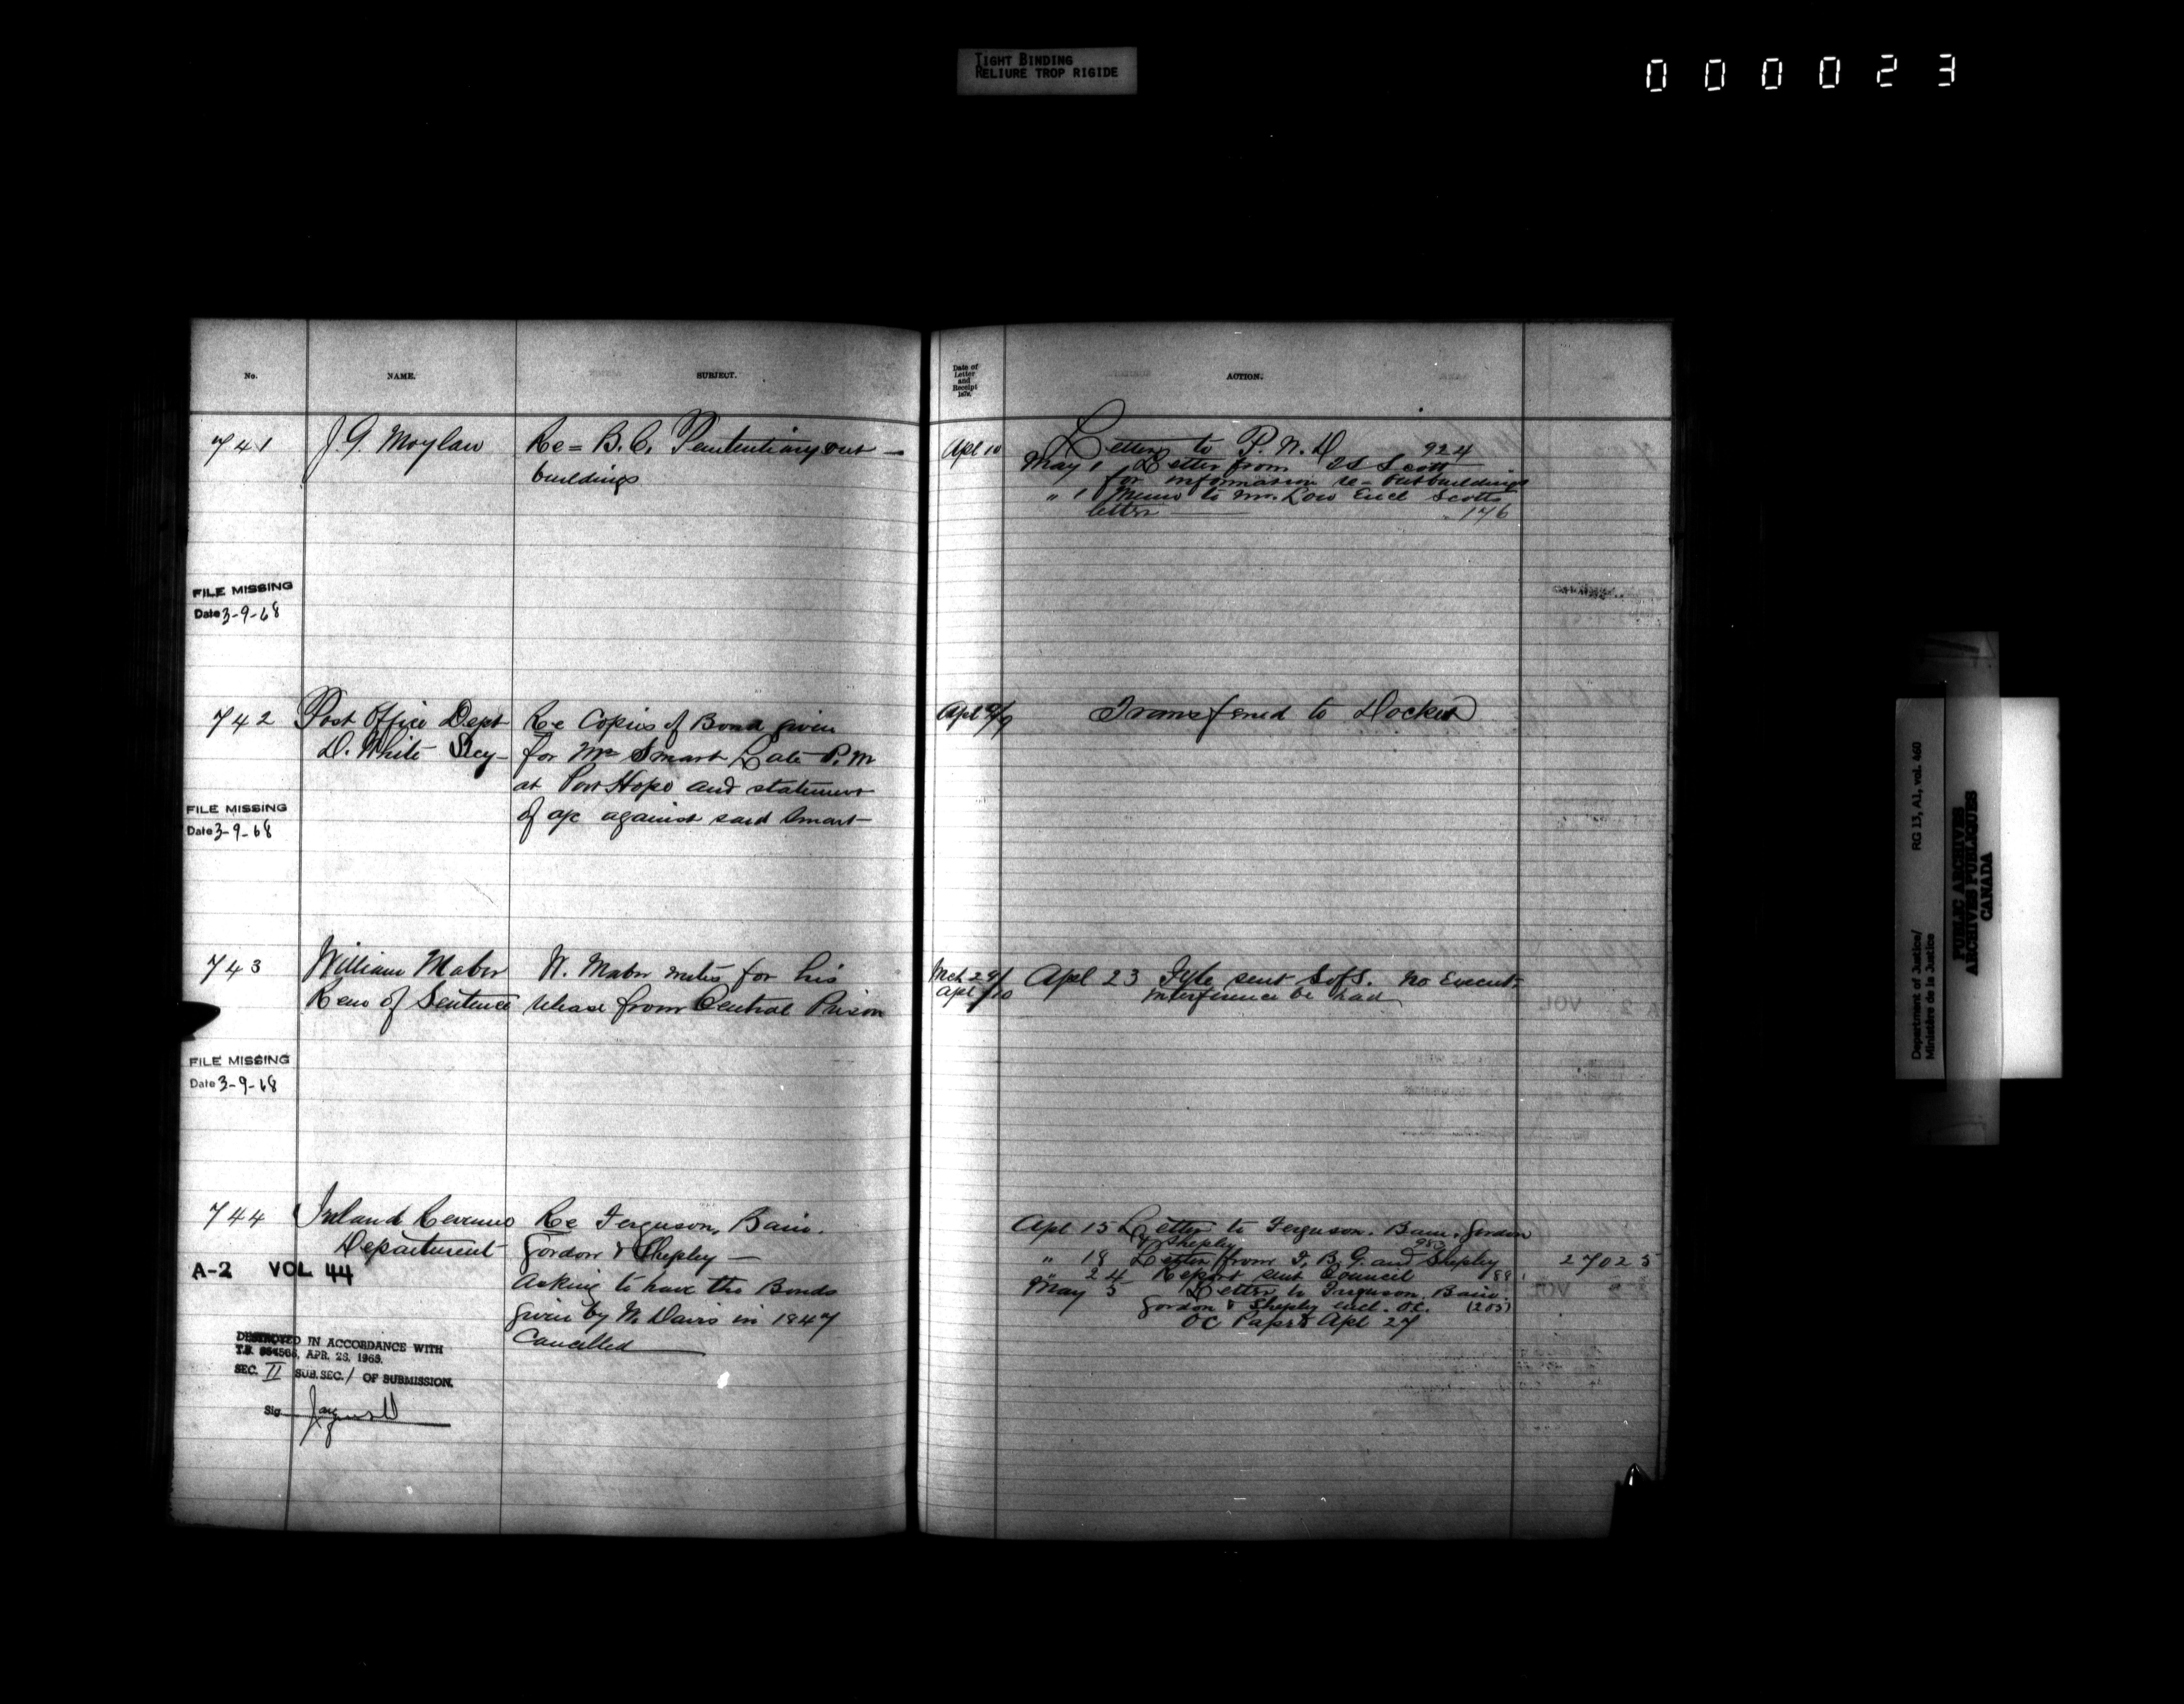 TIGHT BINDING
RELIURE TROP RIGIDE
000023
No. NAME. SUBJECT.
741 J. G. Moylan Re = B.C. Penitentiary out
buildings
FILE MISSING
Date 3-9-68
742 Post Office Dept Re Copies of Bond given
D. White Secy for Mr Smart Late P.M
at Port Hope and statement
of a/c against said Smart
FILE MISSING
Date 3-9-68
743 William Mabor W. Mabor writes for his
Remn of Sentence release from Central Prison
FILE MISSING
Date 3-9-68
744 Inland Revenue Re Ferguson, Bain.
Department Gordon & Shepley
A-2 VOL 44
Asking to have the Bonds
given by W. Davis in 1847
Cancelled
DESTROYED IN ACCORDANCE WITH
T.B. APR. 25, 1963.
SEC. II SUB.SEC. / OF SUBMISSION.
Sig
Date of
Letter
and
Receipt
187
ACTION.
Apl 10 Letter to P.W.D 924
May 1 Letter from Scott
for information re - outbuildings
" 1 Memo to Mr. Low Encl Scotts
letter 176
Apl 9/9 Transferred to Docket
Mch 29/
Apl /10
Apl 23 sent S of S. No Execut-
interference be had
Apl 15 Letter to Ferguson. Bain. Gordon
& Shepley 983
" 18 Letter from F. B. G. and Shepley 27025
" 24 Report sent Council
May 5 Letter to Ferguson. Bain.
Gordon & Shepley encl. O.C. (203)
OC Apl 27
Department of Justice/ RG 13, A1, vol. 460
Ministère de la Justice
PUBLIC ARCHIVES
ARCHIVES PUBLIQUES
CANADA